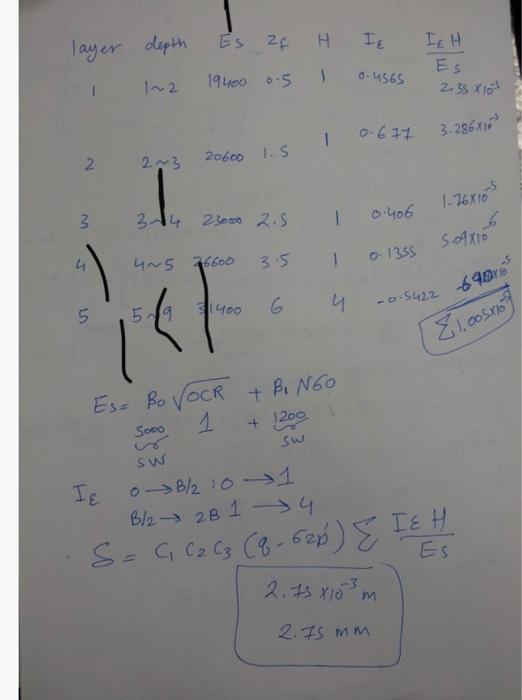 layer depth Es Zf H Iε IεH/Es
1 1~2 19400 0.5 1 0.4565 2.35 x10⁻⁵
2 2~3 20600 1.5 1 0.677 3.286x10⁻⁵
3 3~4 23000 2.5 1 0.406 1.76x10⁻⁵
4 4~5 26600 3.5 1 0.1355 5.09x10⁻⁶
5 5~9 31400 6 4 -0.5422 -6.90x10⁻⁵
Σ 1.005x10⁻⁵
Es = β0 √OCR + β1 N60
5000 1 + 1200
SW SW
Iε 0 → B/2 : 0 → 1
B/2 → 2B 1 → 4
S = C1 C2 C3 (q - 6zp') Σ IεH/Es
2.75 x10⁻³ m
2.75 mm